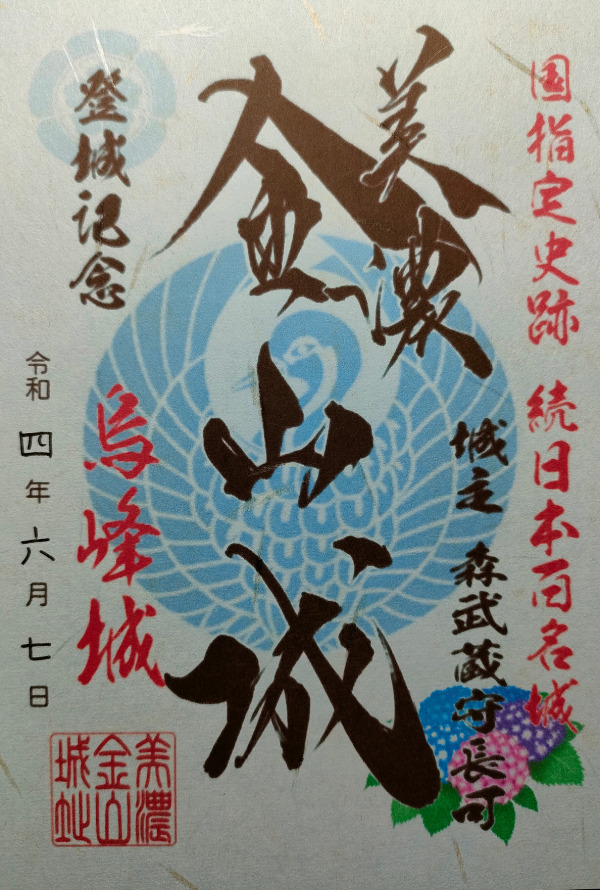 国指定史跡 続日本百名城
城主 森武蔵守長可
美濃
金山城
登城記念
烏峰城
令和四年六月七日
美濃
金山
城址